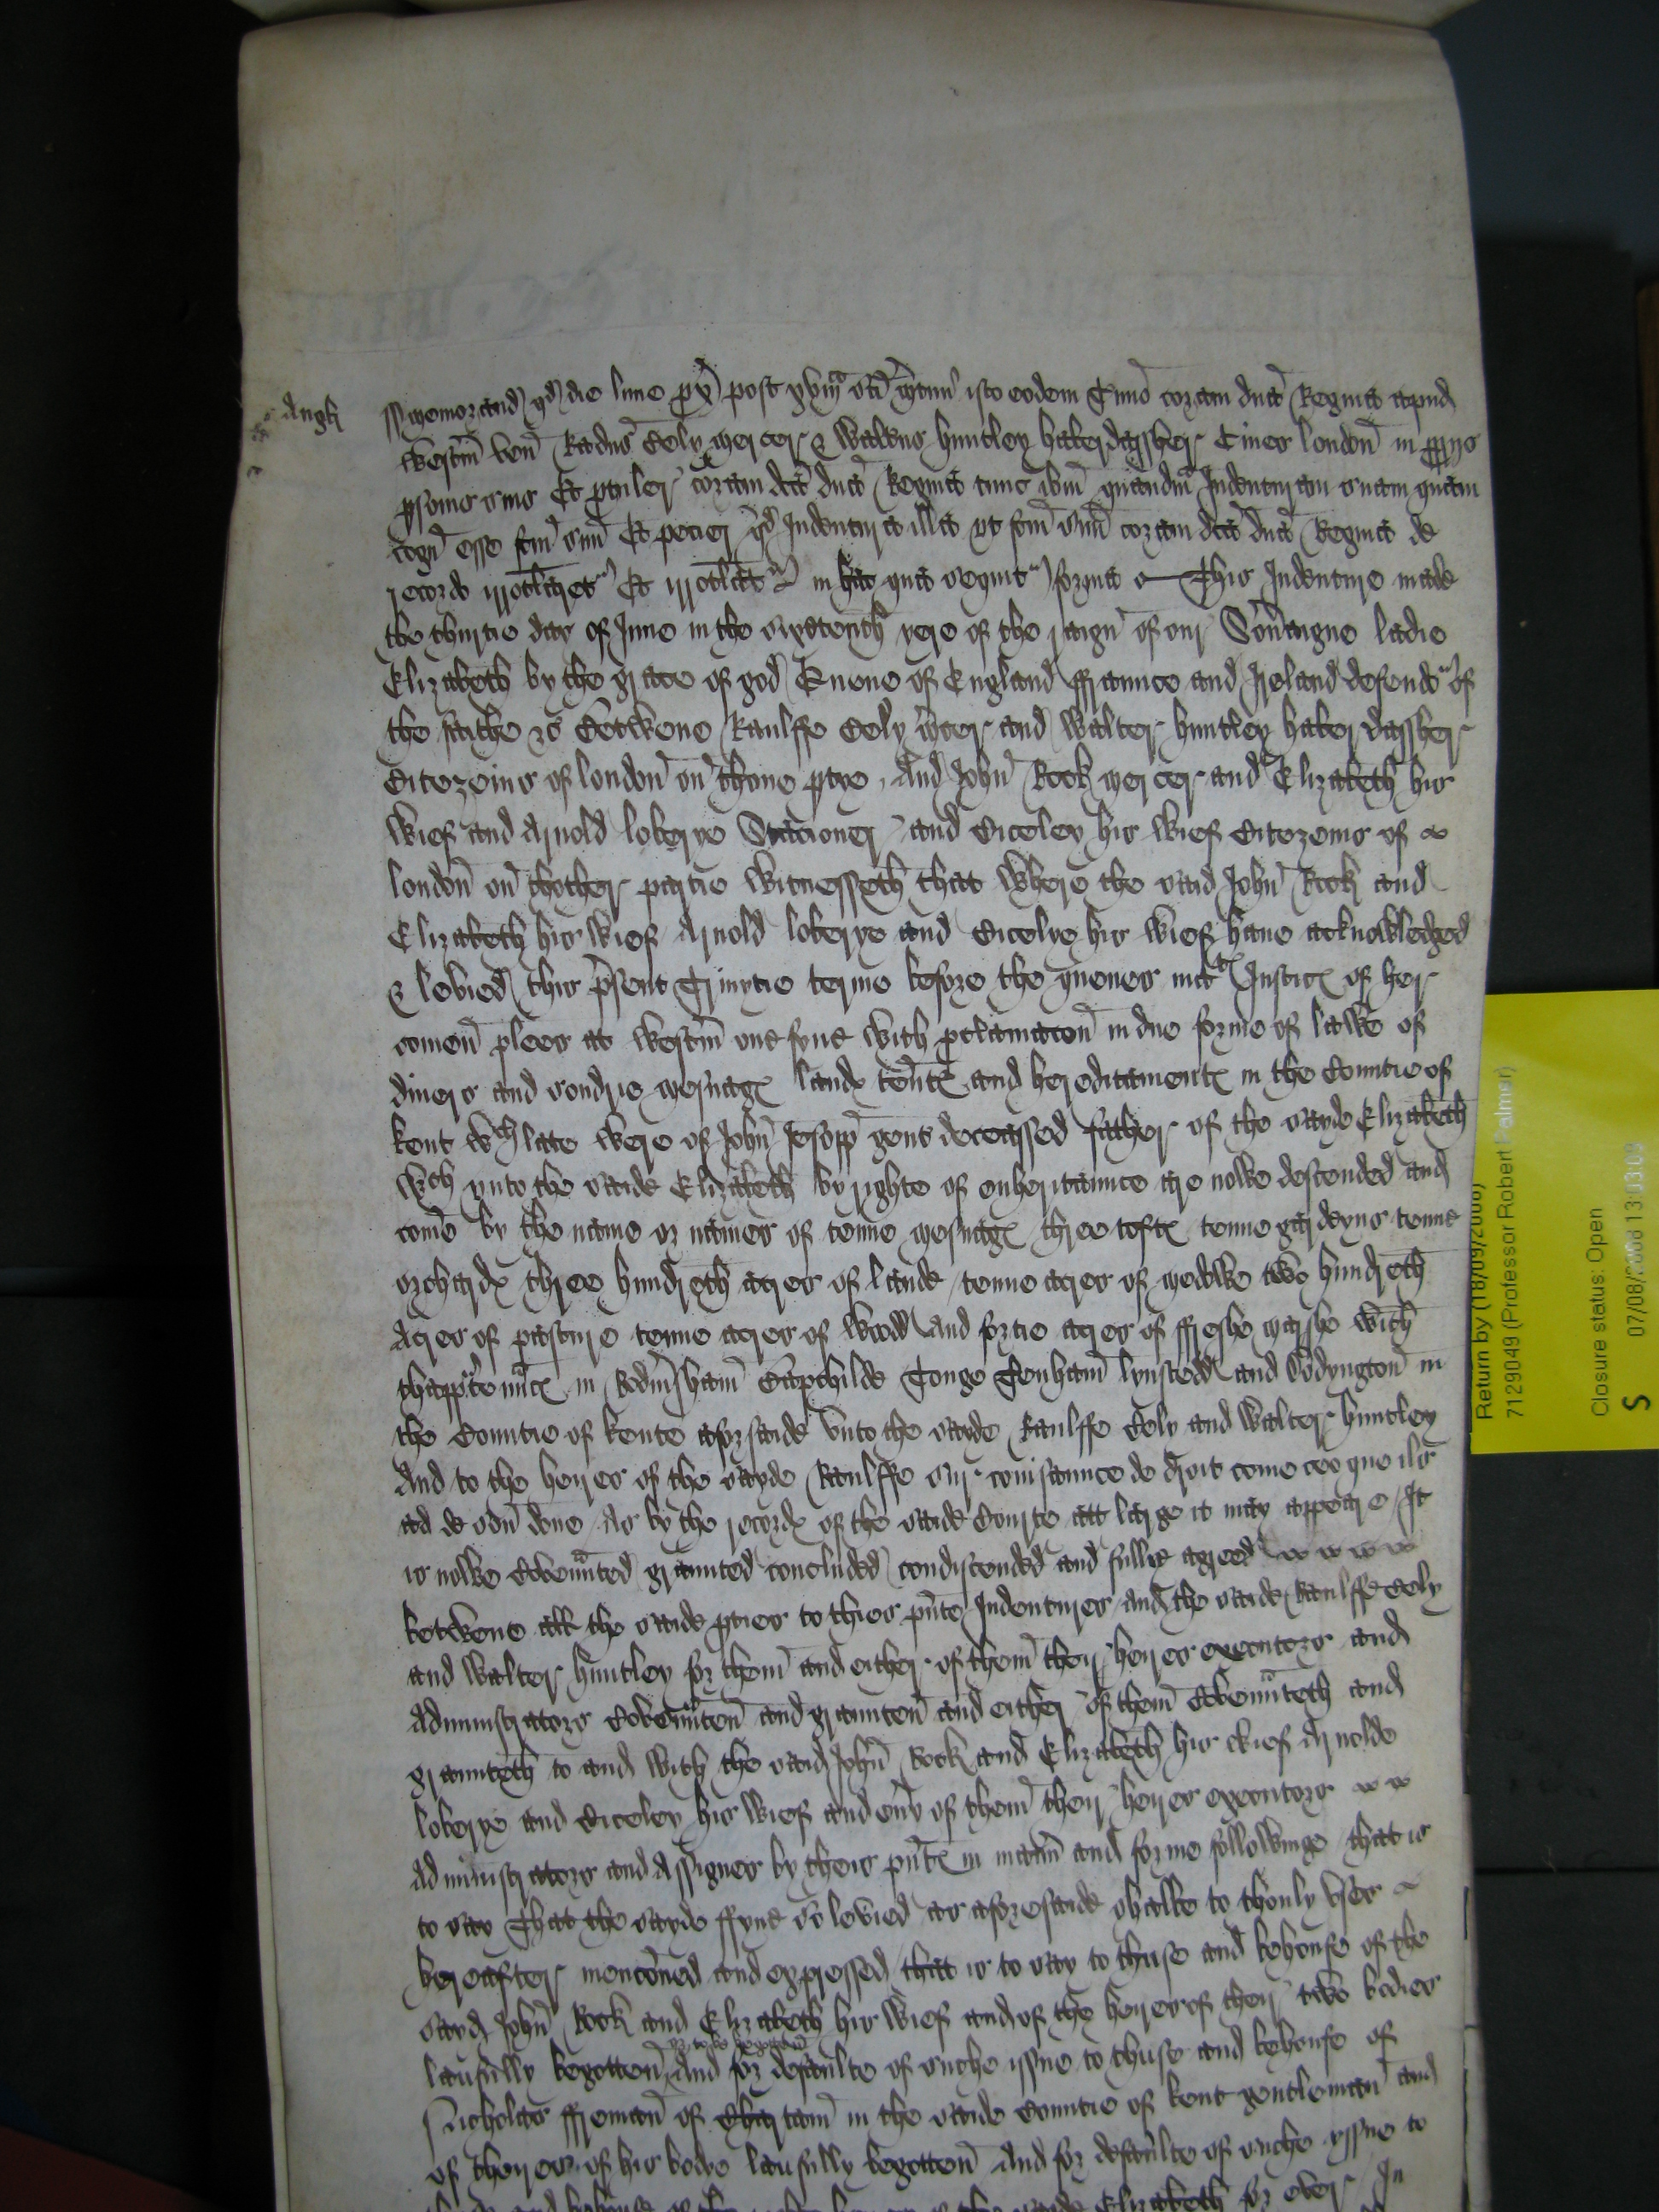 Angł
Memorand qd die lune px post xviij sci Trini isto eodem Timo coram dna Regina apud
Westm ven Radus Coly mercer & Walterus huntley haberdassher Cives london in pprijs
psonis suis Et ptuler coram dca dna Regina tunc ibm quandam Indentur suam quam
cogn esse fcm suu Et petier qd Indentura illa ut fcm suu coram dca dna Regina de
recordo irrotlaret Et irrotlat in hac que sequit forma s This Indenture made
the thirtie day of June in the sixtenth yere of the raign of our Souaigne ladie
Elizabeth by the grace of god Quene of England ffraunce and Ireland defendo of
the faithe &c Betwene Raulffe Coly mcer and Walter huntley haberdassher
Citezeins of london on thone ptye, And John Rook mercer and Elizabeth his
wief and Arnold loberye Stacioner and Ciceley his wief Citezeins of
london on thother partie witnesseth that where the said John Rook and
Elizabeth his wief Arnold loberye and Cicelye his wief have acknowledged
& levied this psent Trinytie terme before the quenes mates Justices of her
comen plees at westm one fyne with pclamacon in due forme of lawe of
divers and sondrie mesuages landes tentes and hereditamentes in the Countie of
kent wch late were of John Jesopp gent deceassed father of the sayde Elizabeth
wch unto the saide Elizabeth by righte of enheritaunce are nowe descended and
come by the name or names of tenne mesuages three toftes tenne gardeyns tenne
orchardes three hundreth acres of lande tenne acres of medowe two hundreth
Acres of pasture tenne acres of wood and fortie acres of ffreshe marshe with
thapptennces in Rodmsham Bapchilde Tonge Tenham lynsted and Dodyngton in
the Countie of kente aforsaide unto the sayde Raulffe Coly and walter huntley
And to the heires of the sayde Raulffe sur conisaunce de droit come ceo que ils
ad de son done As by the recordes of the saide Courte att large it may appeare It
is nowe Covennted graunted concluded condiscended and fullie agreed
betwene all the saide pties to thies pnte Indentures And the saide Raulffe Coly
and walter huntley for them and either of them their heires executors and
Administrators Covennten and graunten and either of them Covennteth and
graunteth to and with the said John Rook and Elizabeth his wief Arnolde
loberye and Ciceley his wief and eny of them their heires executors
Administrators and Assignes by theis pntes in mann and forme followinge that is
to say That the sayde ffyne so levied as aforesaide shalbe to thonly uses
hereafter menconed and expressed that is to say to thuse and behoufe of the
sayd John Rook and Elizabeth his wief and of the heires of their two bodies
or to be begotten
laufully begotten And for defaulte of suche issue to thuse and behoufe of
Nicholas ffreman of Chartam in the saide Countie of kent gentleman and
of theires of his bodye laufully begotten And for defaulte of suche yssue to
Elizabeth for ever In
Return by (18/09/2008)
7129049 (Professor Robert Palmer)
Closure status: Open
07/08/2008 13:03:09
S